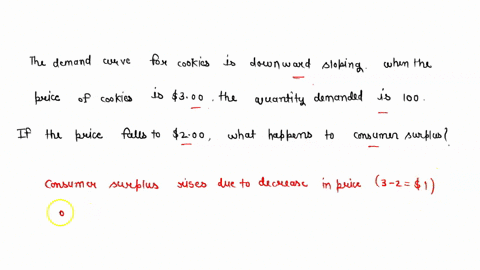 The demand curve for cookies is downward sloping. when the
price of cookies is $3.00. the quantity demanded is 100.
If the price falls to $2.00, what happens to consumer surplus?
Consumer surplus rises due to decrease in price (3-2 = $1)
o